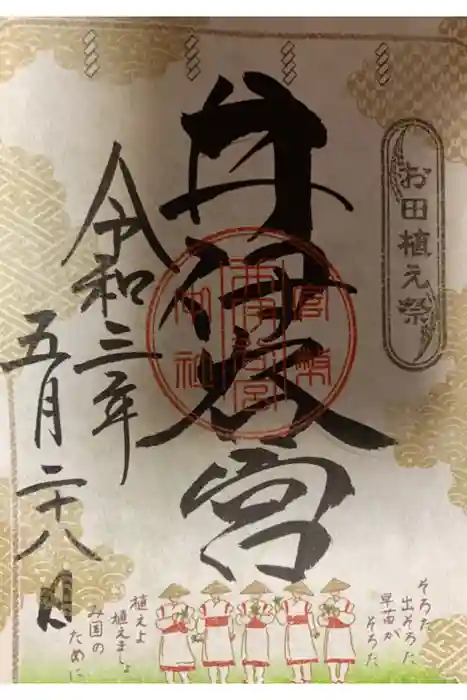 お田植元祭
井伊谷宮
官幣
中社
令和三年
五月二十八日
そろた
出そろた
早苗が
そろた
植えよ
植えましょ
み国の
ために